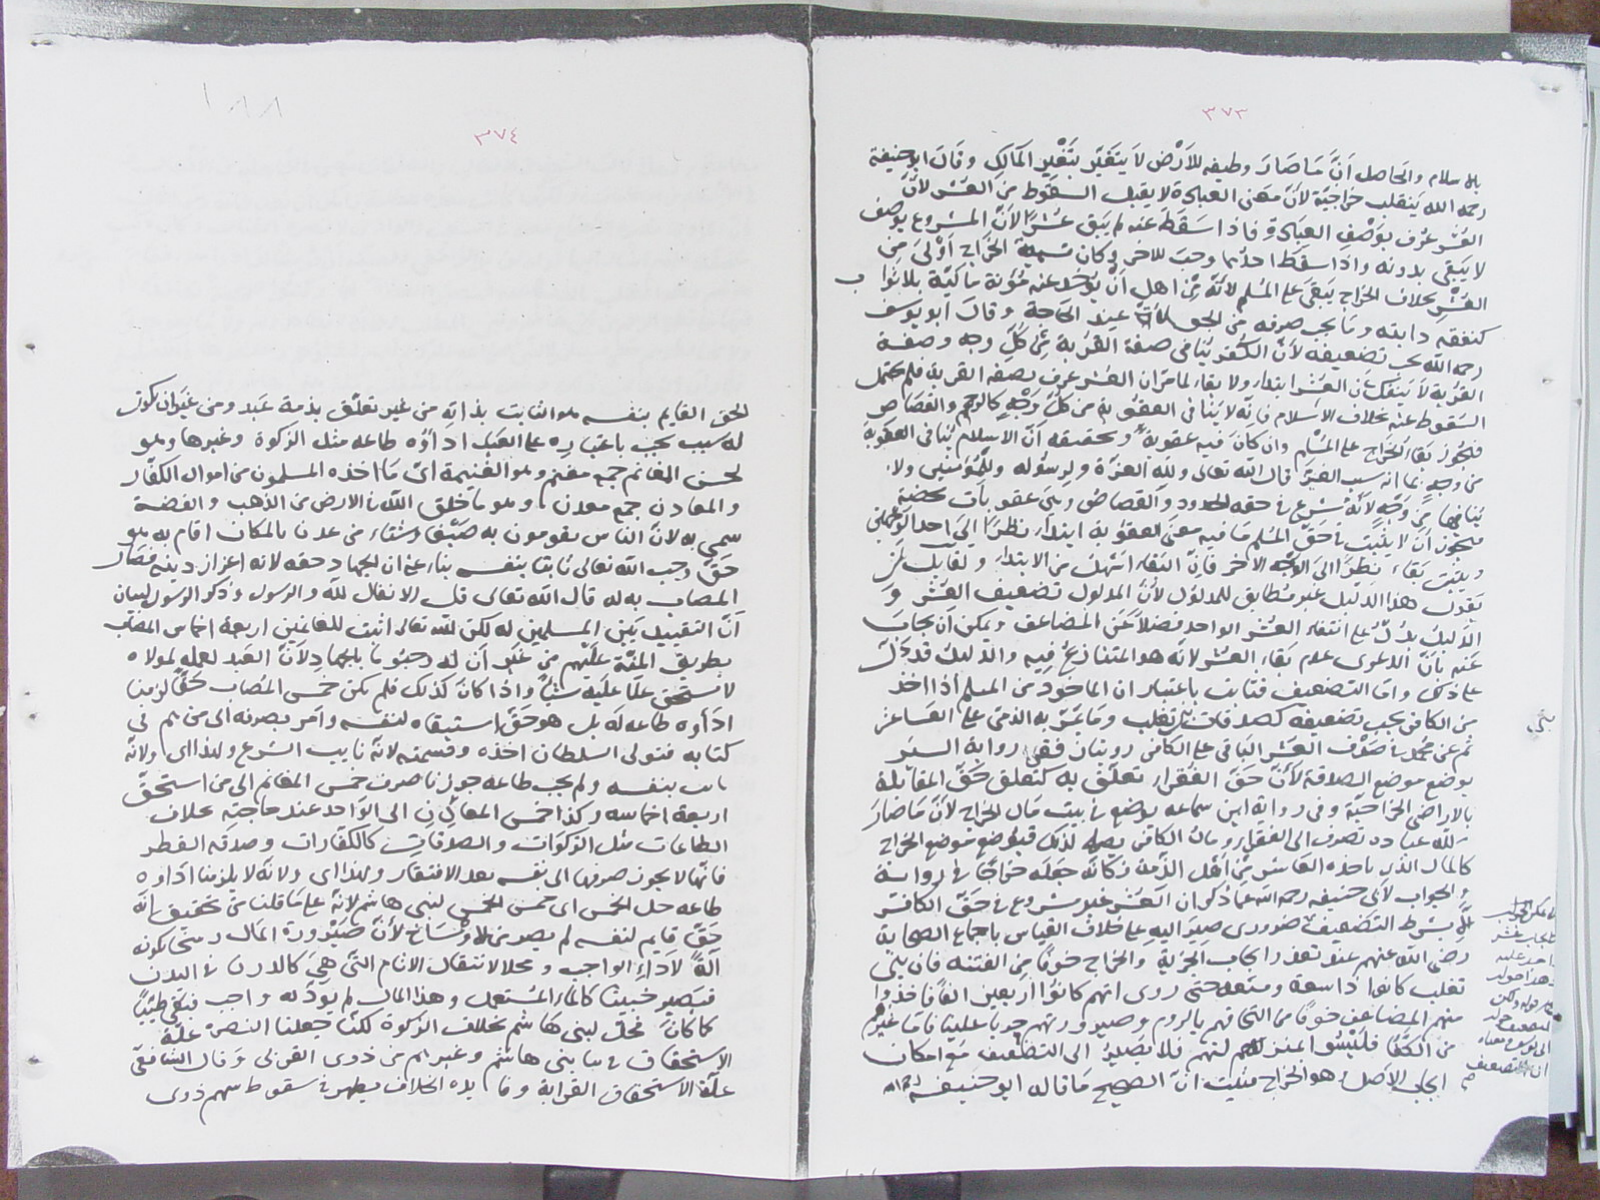 ٣٧٣
بالاسلام والحاصل ان ما صار وظيفه للارض لا يتغير بتغير المالك وقال ابو حنيفة
رحمه الله ينقلب خراجية لان معنى العبادة لا يقبل السقوط من العشر لان
العشر عرف بوصف العبادة فاذا سقط عنه لم يبق عشرا لان المشروع بوصف
لا يبقى بدونه واذا سقط احدهما وجب الاخر فكان تسمية الخراج اولى من
العشر بخلاف الخراج يبقى على المسلم لانه من اهل ان يؤخذ عنه مؤونة ماكية بلا ثواب
كنفقه دابته وما يجب صرفه من الحق عند الحاجة وقال ابو يوسف
رحمه الله يجب تضعيفه لان الكفر ينافى صفة القربة من كل وجه وصفة
القربة لا ينفك عن العشر ابتداء ولا بقاء لما مر ان العشر عرف بصفه القربة فلم يحتمل
السقوط عنه بخلاف الاسلام فانه لا ينافى العقوبة من كل وجه كالرجم والقصاص
فيجوز بقاء الخراج على المسلم وان كان فيه عقوبة وتحقيقه ان الاسلام ينافى العقوبة
من وجه بما انه سبب العز قال الله تعالى ولله العزة ولرسوله وللمؤمنين ولا
ينافيها من وجه لانه شرع فى حقه الحدود والقصاص وهى عقوبات محضة
فيجوز ان لا يثبت فى حق المسلم ما فيه معنى العقوبة ابتداء نظرا الى احد الوجهين
ويثبت بقاء نظرا الى الوجه الاخر فان البقاء اسهل من الابتداء ولقايل ان
يقول هذا الدليل غير مطابق للمدلول لان المدلول تضعيف العشر و
الدليل يدل على انتفاء العشر الواحد فضلا عن المضاعف ويمكن ان يجاب
عنه بان الدعوى عدم بقاء العشر لانه هو المتنازع فيه والدليل قد دل
على ذلك واما التضعيف فثابت باعتبار ان الماخوذ من المسلم اذا اخذ
من الكافر يجب تضعيفه كصدقات بنى تغلب وما يمر به الذمى على العاشر
ثم عن محمد فى صرف العشر الباقى على الكافر روايتان ففى رواية السير
يوضع موضع الصدقة لان حق الفقراء تعلق به كتعلق حق المقابلة
بالاراضى الخراجية وفى رواية ابن سماعه يوضع فى بيت مال الخراج لان ما صار
لله عباده تصرف الى الفقراء ومال الكافر لا يصلح لذلك فيوضع موضع الخراج
كالمال الذى ياخذه العاشر من اهل الذمة فكانه جعله خراجا فى رواية
والجواب لابى حنيفه رحمه الله عما ذكر ان العشر غير مشروع فى حق الكافر
الا بشرط التضعيف ضرورى صير اليه على خلاف القياس باجماع الصحابة
رضى الله عنهم عند تعذر ايجاب الجزية والخراج خوفا من الفتنه فان بنى
تغلب كانوا ذا سعة ومنعة حتى روى انهم كانوا اربعين الفا فاخذوا
منهم المضاعف خوفا من التحاقهم بالروم وصيرورتهم حربا علينا فاما غيرهم
من الكفار فليسوا بمنزلتهم فلا يصير الى التضعيف مع امكان
ايجاب الاصل وهو الخراج فثبت ان الصحيح ما قاله ابو حنيفة رحمه الله
٣٧٤
١٨٨
الحق القايم بنفسه هو الثابت بذاته من غير تعلق بذمة عبد ومن غير ان يكون
له سبب يجب باعتباره على العبد اداؤه طاعه مثل الزكوة وغيرها وهو
لخمس المغانم جمع مغنم وهو الغنيمة اى ما اخذه المسلمون من اموال الكفار
والمعادن جمع معدن وهو ما خلق الله فى الارض من الذهب والفضة
سمى به لان الناس يقومون به صيفا وشتاء من عدن بالمكان اقام به هو
حق وجب الله تعالى ثابتا بنفسه بناء على ان الجهاد حقه لانه اعزاز دينه فصار
المصاب به له قال الله تعالى قل الانفال لله والرسول وذكر الرسول لبيان
ان التقييد بين المسلمين له لكن الله تعالى اثبت للغانمين اربعة اخماس المصاب
بطريق المنة عليهم من غير ان يستوجبوها بالجهاد لان العبد لعمله لمولاه
لا يستحق عليه شيئا واذا كان كذلك فلم يكن خمس المصاب حقا لزمنا
اداؤه طاعه له بل هو حق استبقاه لنفسه وامر بصرفه الى من هم فى
كتابه فتولى السلطان اخذه وقسمته لانه نايب الشرع ولهذا اى ولانه
ثابت بنفسه ولم يجب طاعه جوزنا صرف خمس المغانم الى من استحق
اربعة اخماسه وكذا خمس المعادن الى الواحد عند حاجته بخلاف
الطاعات مثل الزكوات والصدقات كالكفارات وصدقه الفطر
فانها لا يجوز صرفها الى نفسه بعد الافتقار ولهذا اى ولانه لا يلزمنا اداؤه
طاعه حل الخمس اى خمس الخمس لبنى هاشم لانه على ما قلنا من تحقيق انه
حق قايم لنفسه لم يصر من الاوساخ لان صيرورة المال وسخا كونه
آلة لاداء الواجب ومحلا لانتقال الاثام التى هى كالدرن فى البدن
فيصير خبيثا كالماء المستعمل وهذا المال لم يؤد به واجب فبقى طيبا
كما كان فحل لبنى هاشم بخلاف الزكوة لكنا جعلنا النصرة علة
الاستحقاق فى بنى هاشم وغيرهم من ذوى القربى وقال الشافعى
علة الاستحقاق القرابة وفايدة الخلاف يظهر فى سقوط سهم ذوى